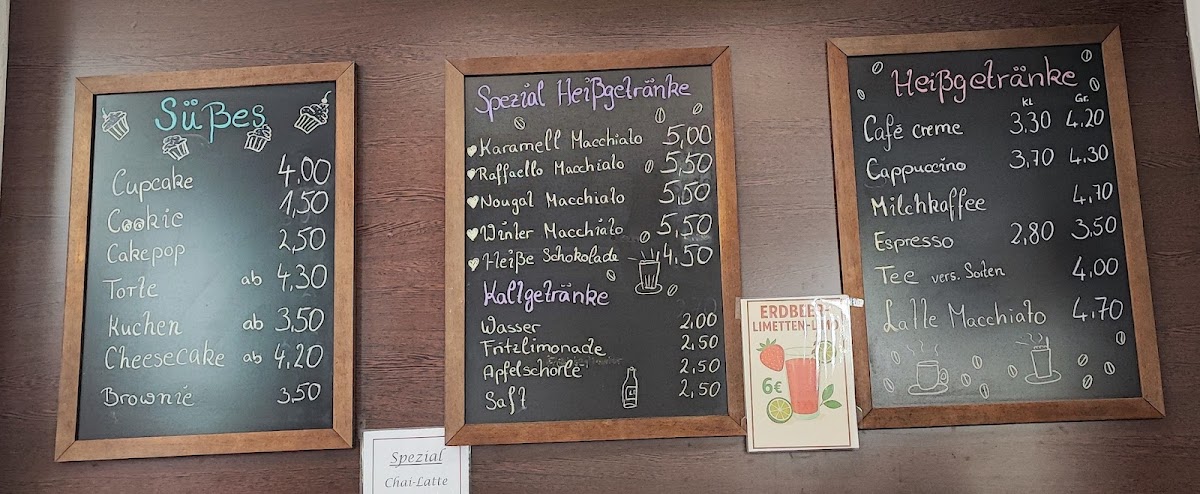 Süßes
Cupcake 4,00
Cookie 1,50
Cakepop 2,50
Torte ab 4,30
Kuchen ab 3,50
Cheesecake ab 4,20
Brownie 3,50
Spezial
Chai-Latte
Spezial Heißgetränke
Karamell Macchiato 5,00
Raffaello Macchiato 5,50
Nougat Macchiato 5,50
Winter Macchiato 5,50
Heiße Schokolade 4,50
Kaltgetränke
Wasser 2,00
Fritzlimonade 2,50
Apfelschorle 2,50
Saft 2,50
ERDBEER-
LIMETTEN-LIMO
6€
Heißgetränke
Kl. Gr.
Café creme 3,30 4,20
Cappuccino 3,70 4,30
Milchkaffee 4,70
Espresso 2,80 3,50
Tee vers. Sorten 4,00
Latte Macchiato 4,70